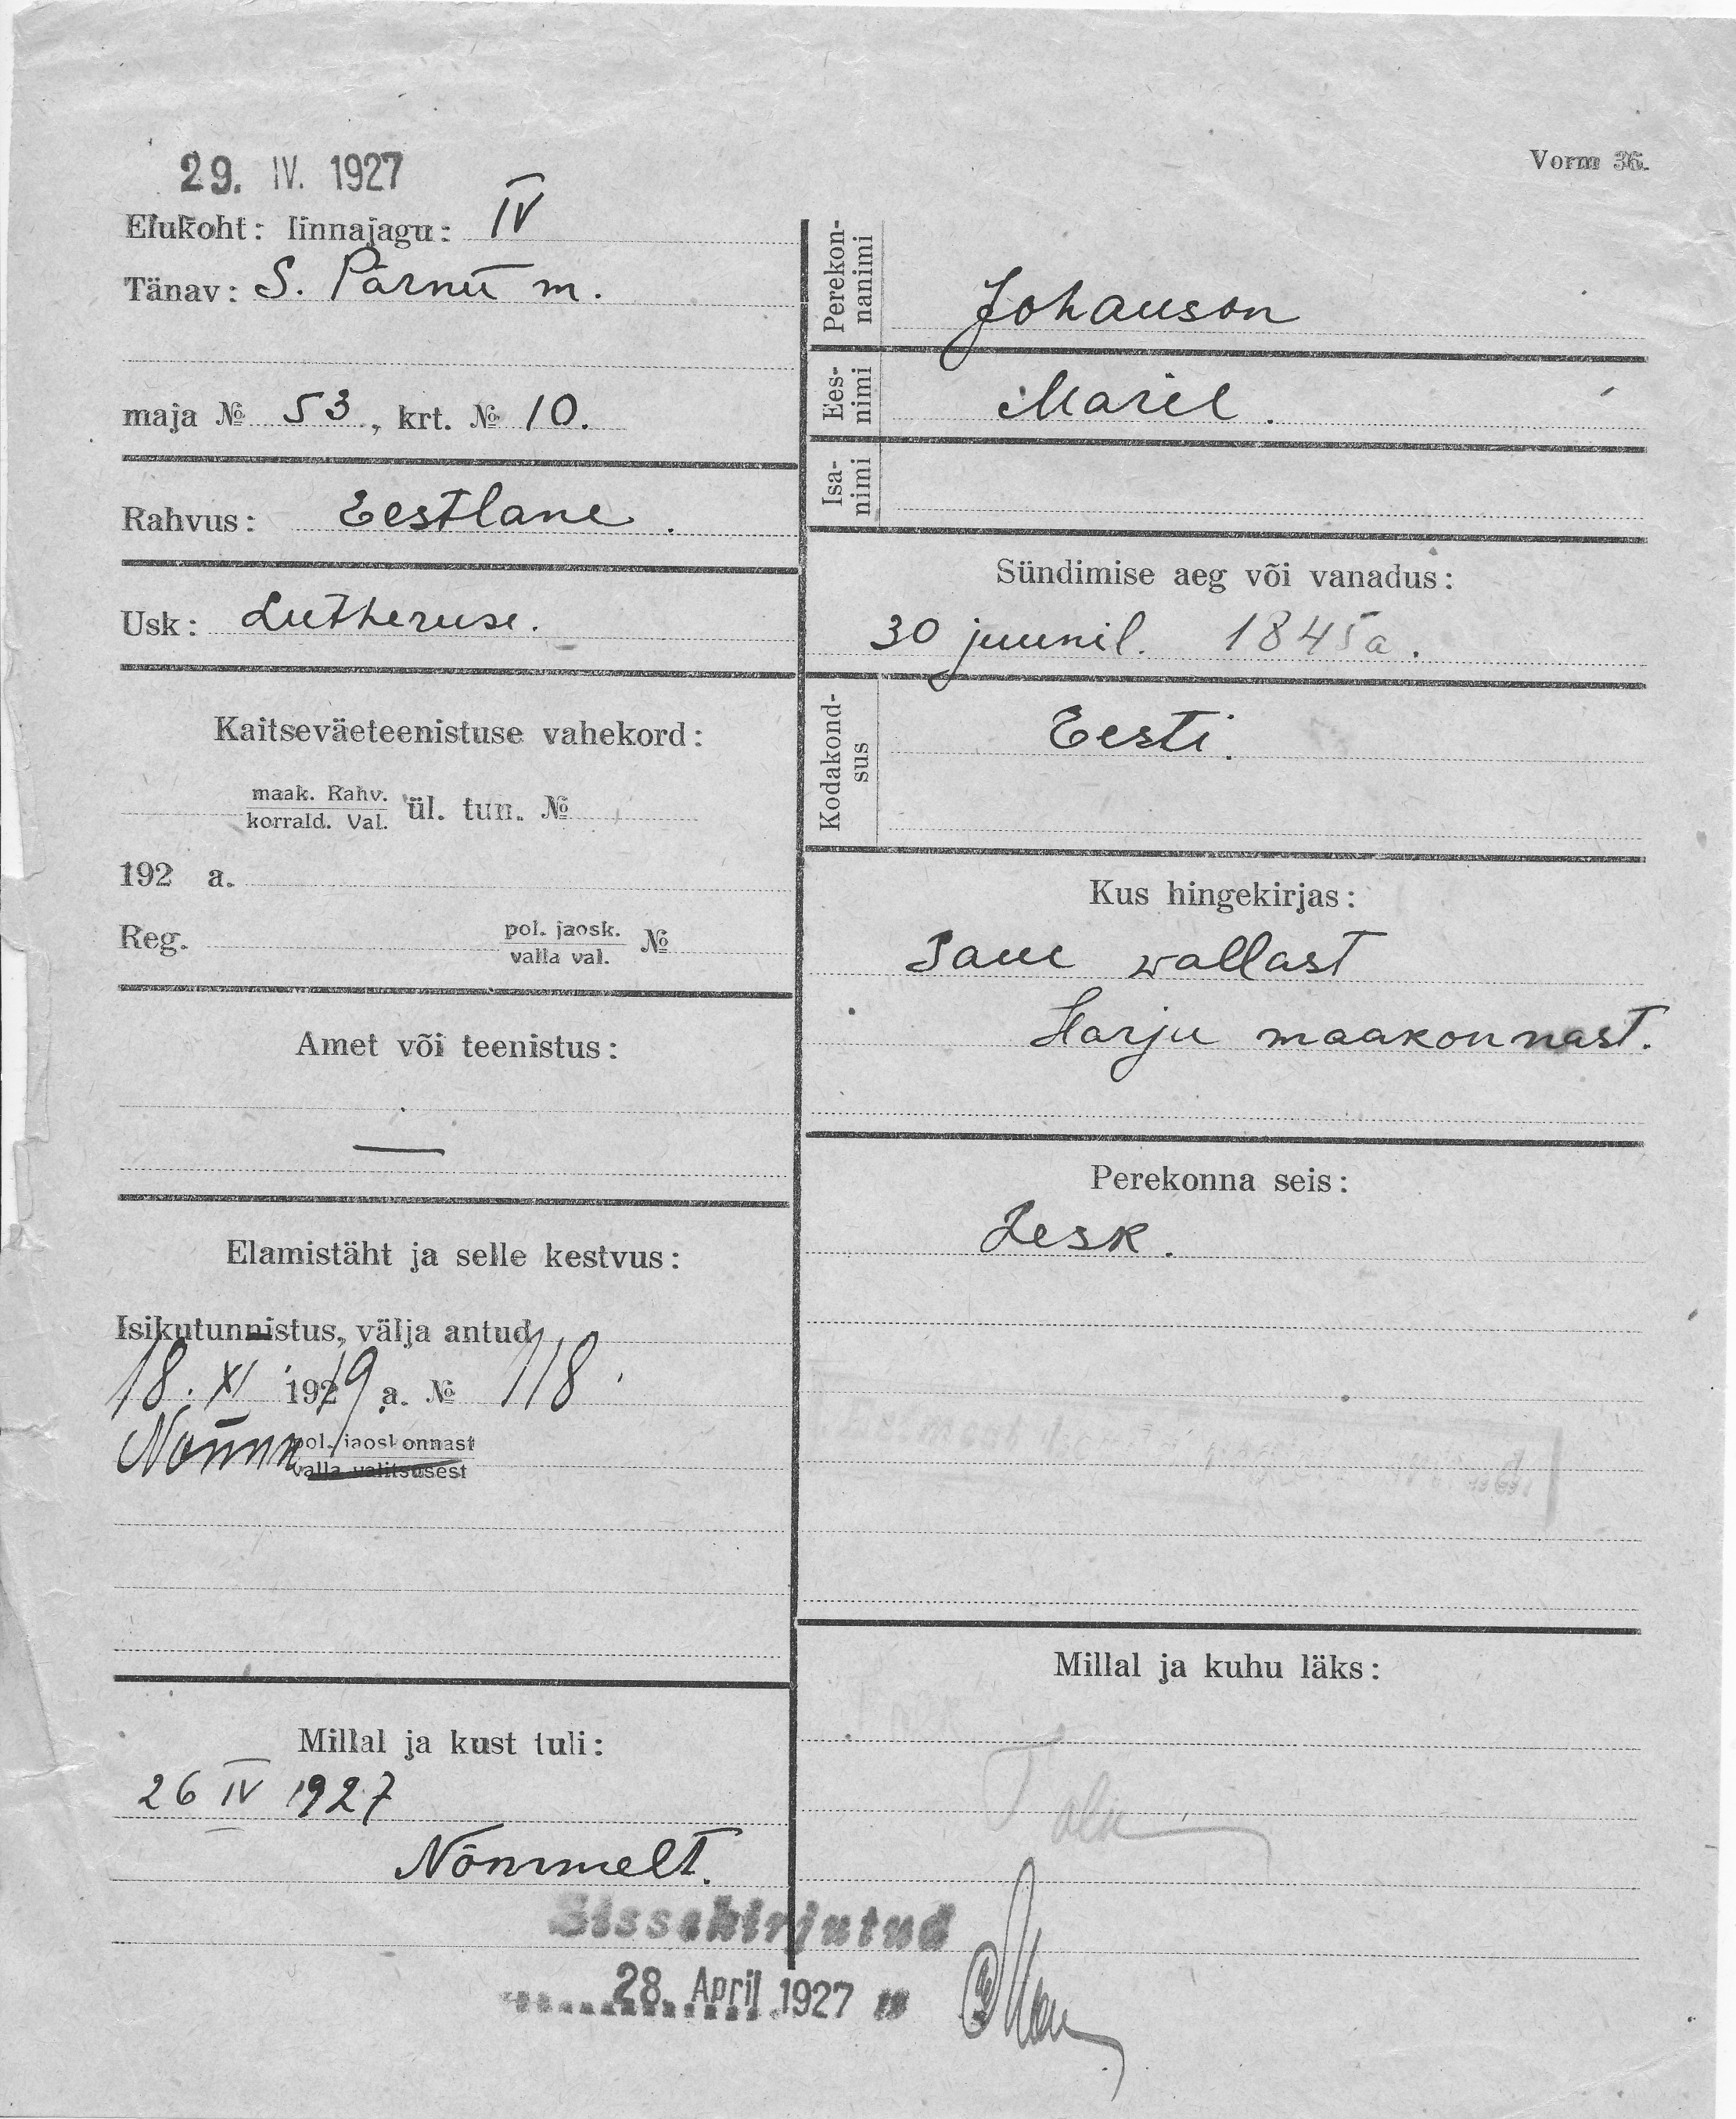 29. IV. 1927
Vorm 36.
Elukoht: linnajagu: IV
Tänav: S. Pärnu m.
maja № 53, krt. № 10.
Rahvus: Eestlane.
Usk: Lutheruse.
Kaitseväeteenistuse vahekord:
maak. Rahv.
korrald. Val. ül. tun. №
192 a.
Reg. pol. jaosk. №
valla val.
Amet või teenistus:
—
Elamistäht ja selle kestvus:
Isikutunnistus, välja antud
18. XI 1919 a. № 118.
pol. jaoskonnast
valla valitsusest
Millal ja kust tuli:
26 IV 1927
Nõmmelt.
Perekon-
nanimi
Johanson
Ees-
nimi
Mariel.
Isa-
nimi
Sündimise aeg või vanadus:
30 juunil. 1845 a.
Kodakond-
sus
Eesti.
Kus hingekirjas:
Saue wallast
Harju maakonnast.
Perekonna seis:
Lesk.
Millal ja kuhu läks:
Sissekirjutud
28. April 1927